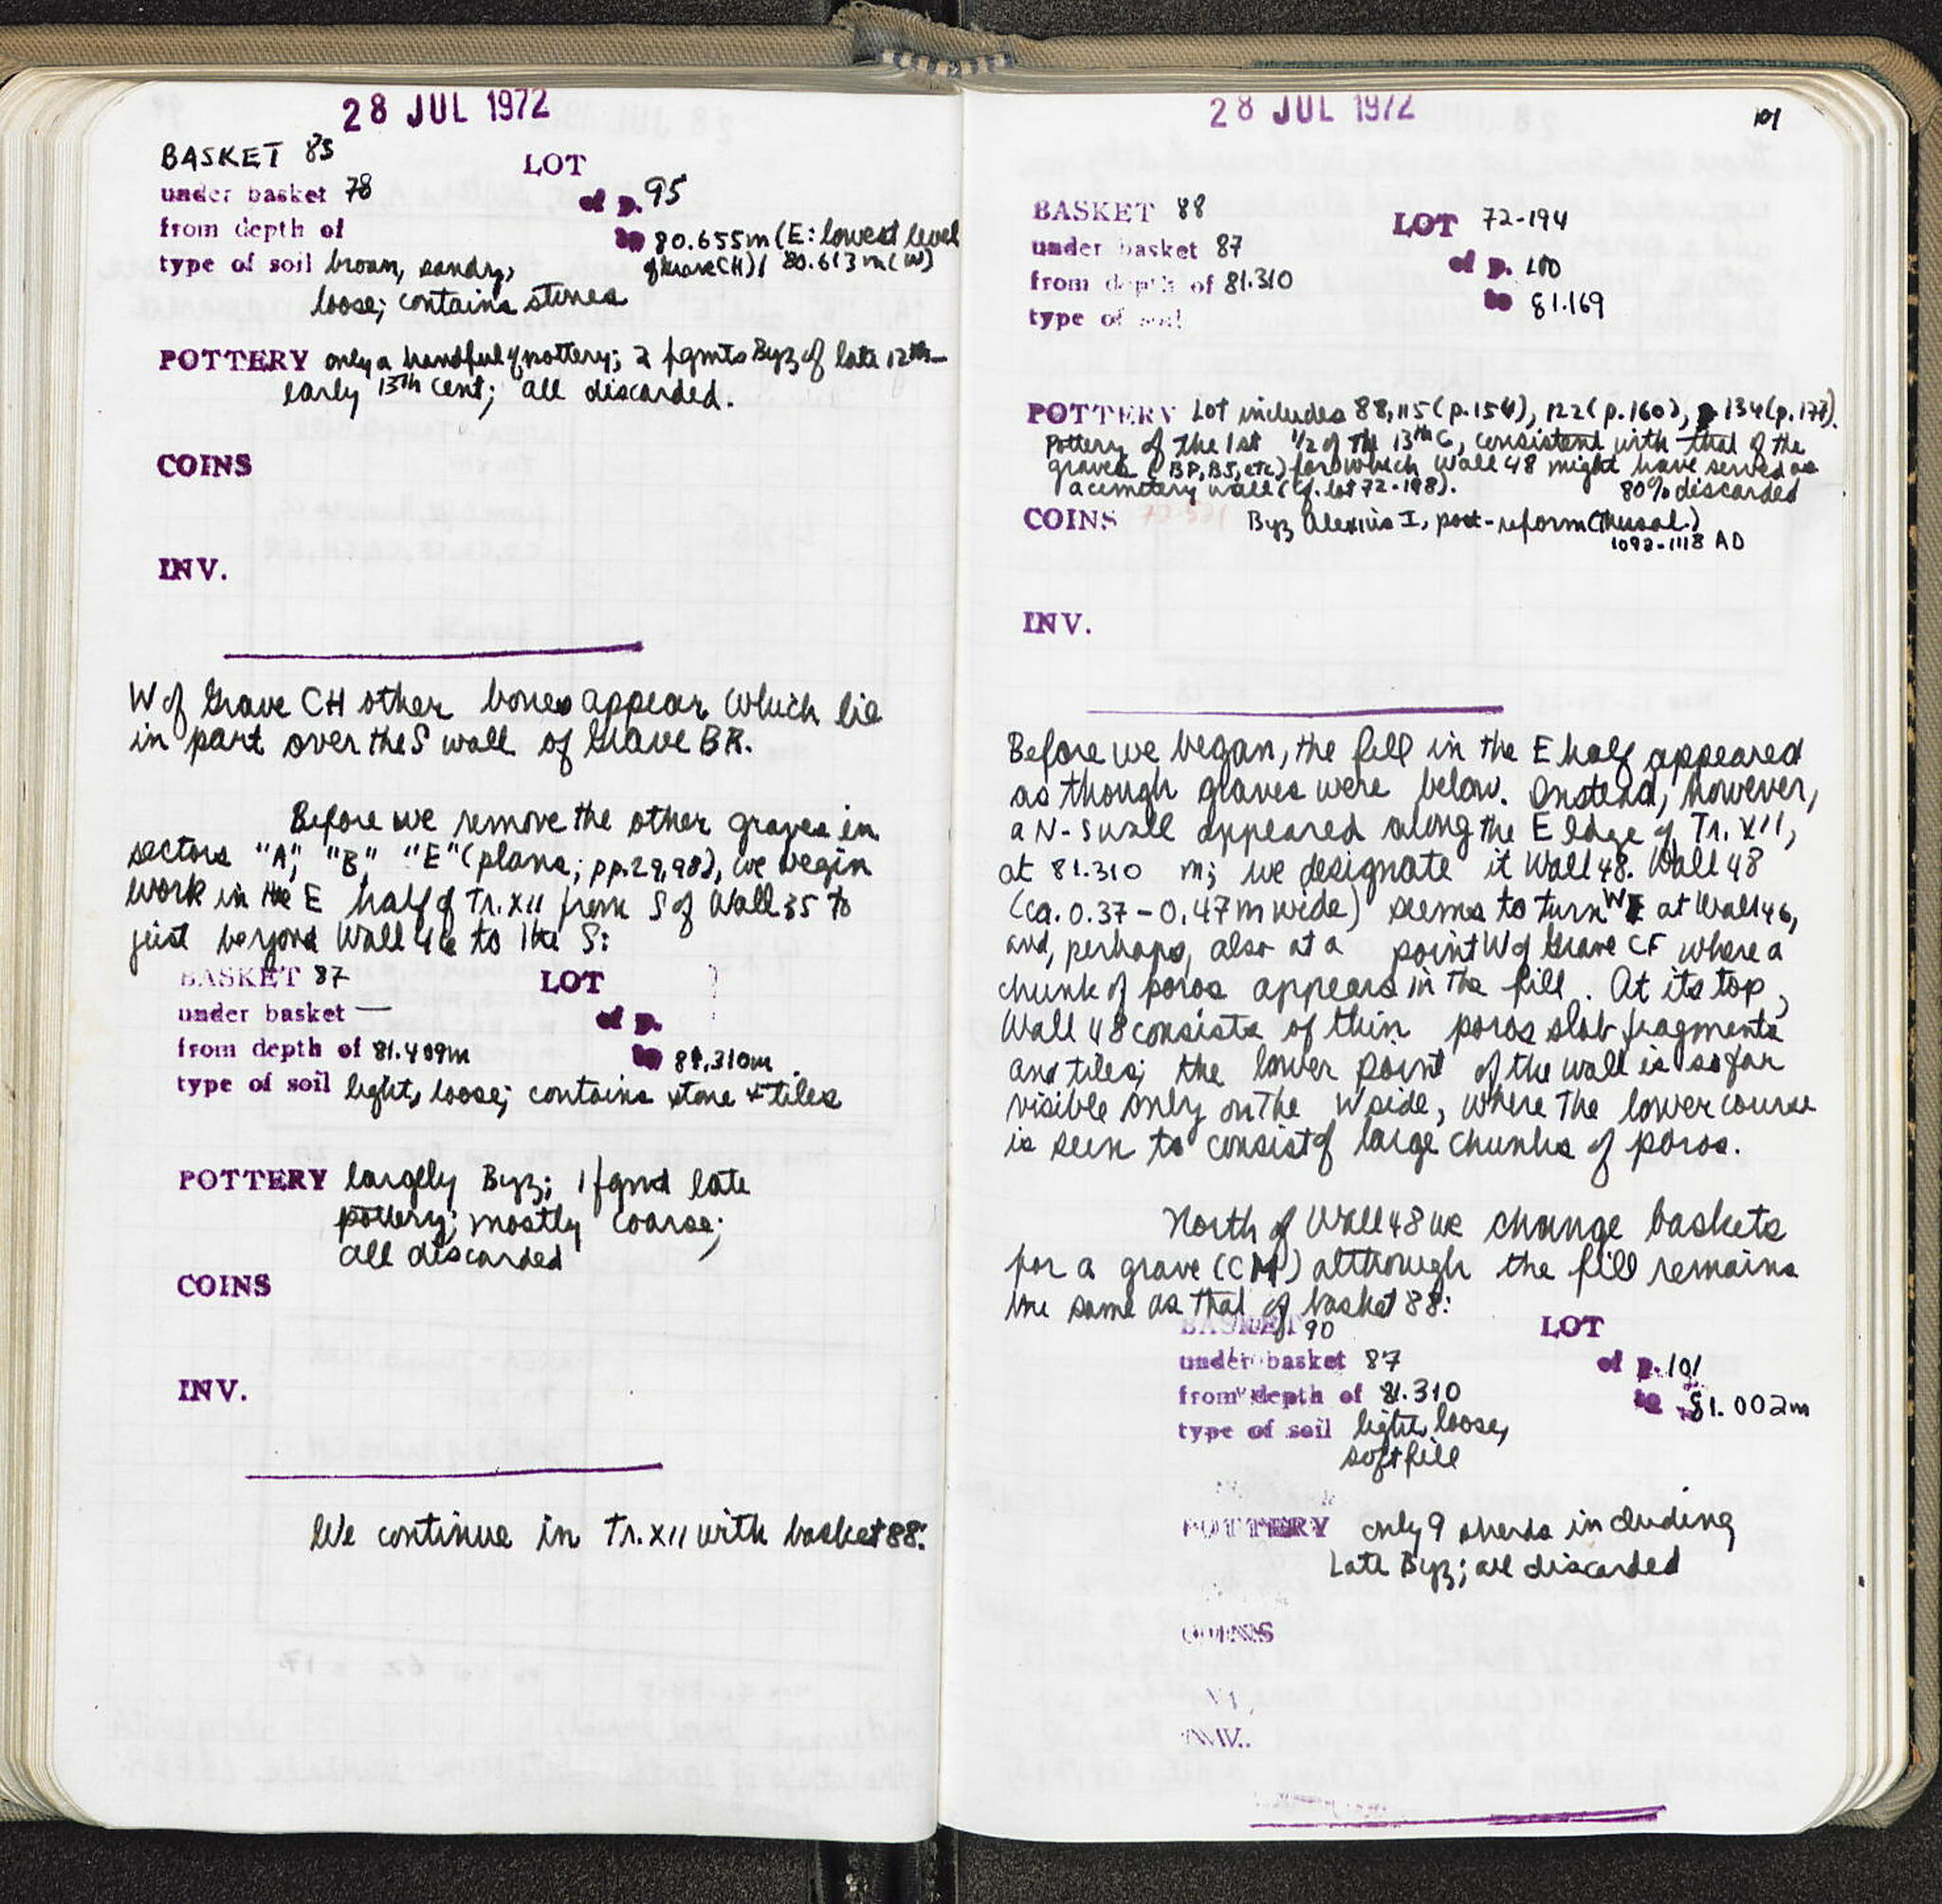 28 JUL 1972
BASKET 85
LOT
under basket 78
of p. 95
from depth of
to 80.655m (E: lowest level
of Grave CH); 80.613m (W)
type of soil brown, sandy,
loose; contains stones
POTTERY only a handful of pottery; 2 fgmts Byz of late 12th–
early 13th cent; all discarded.
COINS
INV.
W of Grave CH other bones appear which lie
in part over the S wall of Grave BR.
Before we remove the other graves in
sectors "A", "B", "E" (plans; pp. 29, 98), we begin
work in the E half of Tr. XII from S of Wall 35 to
just beyond Wall 46 to the S:
BASKET 87
LOT
under basket —
of p.
from depth of 81.409m
to 81.310m
type of soil light, loose; contains stone + tiles
POTTERY largely Byz; 1 fgmt late
pottery; mostly coarse;
all discarded
COINS
INV.
We continue in Tr. XII with basket 88:
28 JUL 1972
101
BASKET 88
LOT 72-194
under basket 87
of p. 100
from depth of 81.310
to 81.169
type of soil
POTTERY Lot includes 88, 115 (p. 154), 122 (p. 160), 134 (p. 177).
Pottery of the 1st 1/2 of the 13th C, consistent with that of the
graves (BP, BS, etc) for which Wall 48 might have served as
a cemetery wall (cf. lot 72-198).
80% discarded
COINS Byz Alexius I, post-reform (Thessal.)
1092-1118 AD
INV.
Before we began, the fill in the E half appeared
as though graves were below. Instead, however,
a N-S wall appeared along the E edge of Tr. XII,
at 81.310 m; we designate it Wall 48. Wall 48
(ca. 0.37 – 0.47m wide) seems to turn W at Wall 46,
and, perhaps, also at a point W of Grave CF where a
chunk of poros appears in the fill. At its top,
Wall 48 consists of thin poros slab fragments
and tiles; the lower point of the wall is so far
visible only on the W side, where the lower course
is seen to consist of large chunks of poros.
North of Wall 48 we change baskets
for a grave (CM) although the fill remains
the same as that of basket 88:
BASKET 90
LOT
under basket 87
of p. 101
from depth of 81.310
to 81.002m
type of soil light, loose,
soft fill
POTTERY only 9 sherds including
Late Byz; all discarded
COINS
INV.